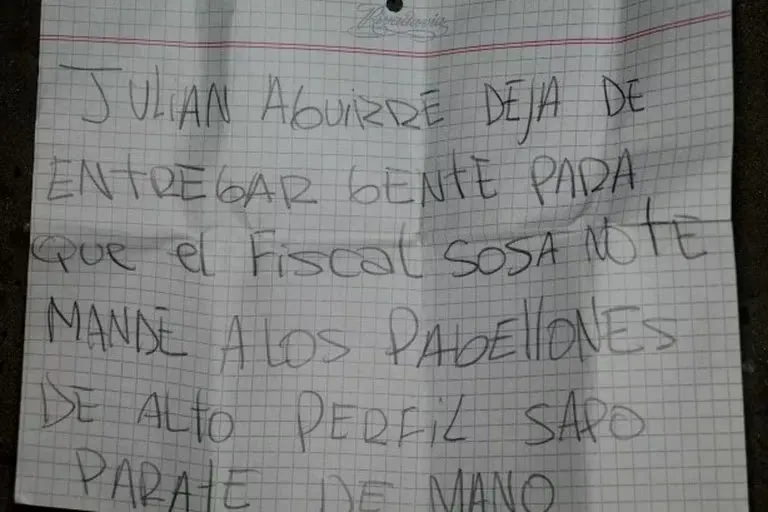 JULIAN AGUIRRE DEJA DE
ENTREGAR GENTE PARA
QUE el FiSCAL SOSA NO tE
MANDE A LOS PABEllONES
DE ALtO PERFiL SAPO
PARAtE DE MANO